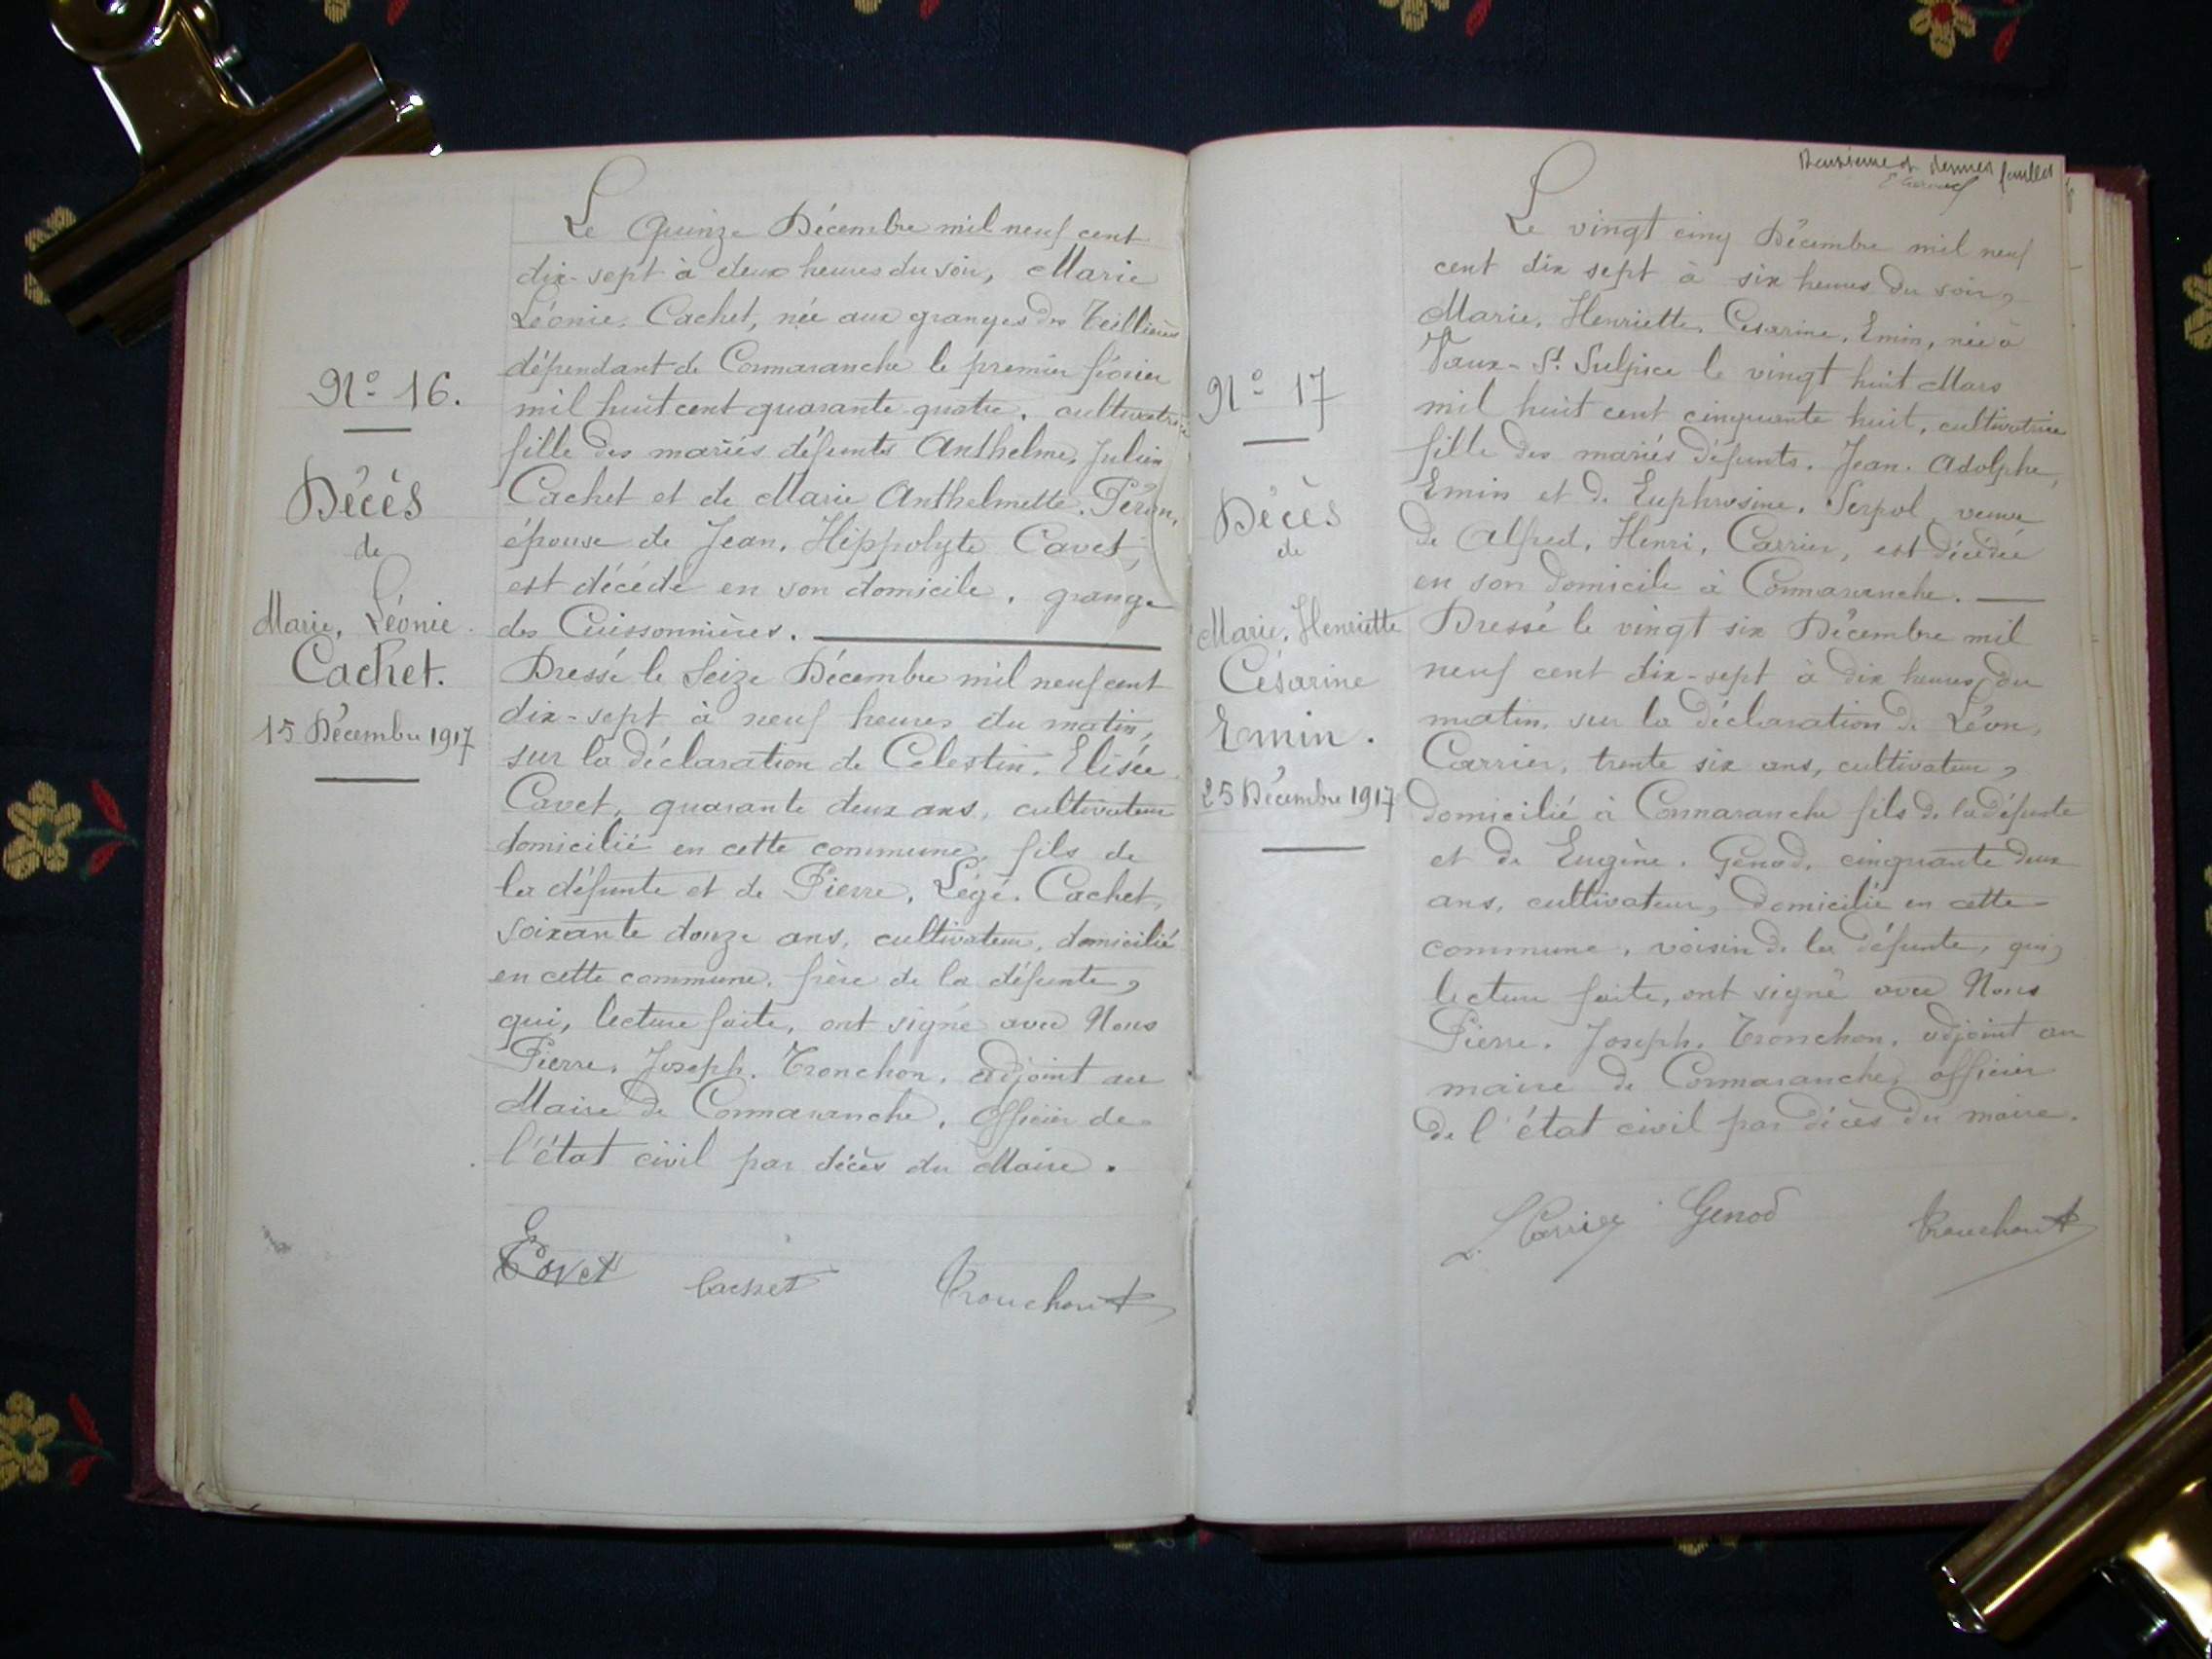 Nº 16.
Décès
de
Marie, Léonie
Cachet.
15 Décembre 1917
Le Quinze Décembre mil neuf cent
dix-sept à deux heures du soir, Marie
Léonie, Cachet, née aux granges des Teillières
dépendant de Cormaranche le premier février
mil huit cent quarante quatre, cultivatrice
fille des mariés défunts Anthelme, Julien
Cachet et de Marie Anthelmette,
épouse de Jean, Hippolyte Cavet,
est décédé en son domicile, grange
des Cuissonnières.
Dressé le Seize Décembre mil neuf cent
dix-sept à neuf heures du matin,
sur la déclaration de Celestin, Elisée
Cavet, quarante deux ans, cultivateur
domicilié en cette commune, fils de
la défunte et de Pierre, Légé, Cachet,
soixante douze ans, cultivateur, domicilié
en cette commune, frère de la défunte,
qui, lecture faite, ont signé avec Nous
Pierre, Joseph, Tronchon, adjoint au
Maire de Cormaranche, Officier de
l'état civil par décès du Maire.
Cavet Cachet Tronchon
Deuxième et dernier feuillet
Nº 17
Décès
de
Marie, Henriette
Césarine
Emin.
25 Décembre 1917
Le vingt cinq Décembre mil neuf
cent dix sept à six heures du soir,
Marie, Henriette, Cesarine, Emin, née à
Vaux-St Sulpice le vingt huit Mars
mil huit cent cinquante huit, cultivatrice
fille des mariés défunts, Jean, Adolphe,
Emin et de Euphrosine, Serpol, veuve
de Alfred, Henri, Carrier, est décédée
en son domicile à Cormaranche.
Dressé le vingt six Décembre mil
neuf cent dix-sept à dix heures du
matin, sur la déclaration de Léon,
Carrier, trente six ans, cultivateur,
domicilié à Cormaranche fils de la défunte
et de Eugène, Genod, cinquante deux
ans, cultivateur, domicilié en cette
commune, voisin de la défunte, qui,
lecture faite, ont signé avec Nous
Pierre, Joseph, Tronchon, adjoint au
maire de Cormaranche, officier
de l'état civil par décès du maire.
L. Carrier Genod Tronchon